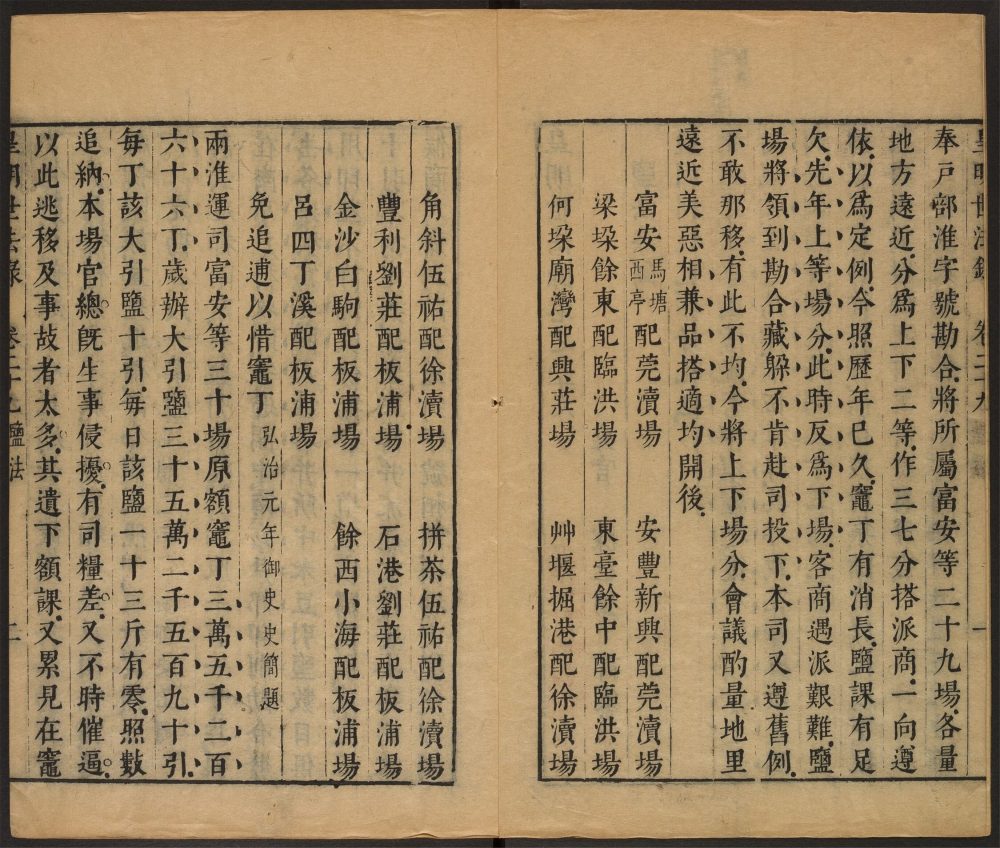 奉戸部淮字號勘合.將所屬富安等二十九場.各量
地方遠近.分爲上下二等.作三七分搭派商.一向遵
依.以爲定例.今照歷年已久.竈丁有消長.鹽課有足
欠.先年上等場分.此時反爲下場.客商遇派艱難.鹽
場將領到勘合藏躲不肯赴司投下.本司又遵舊例.
不敢那移.有此不均.今將上下場分.會議酌量地里
遠近美惡相兼品搭適均開後.
富安馬塘西亭配莞瀆場 安豐新興配莞瀆場
梁垛餘東配臨洪場 東臺餘中配臨洪場
何垛廟灣配興莊場 艸堰掘港配徐瀆場
角斜伍祐配徐瀆場 拼茶伍祐配徐瀆場
豐利劉莊配板浦場 石港劉莊配板浦場
金沙白駒配板浦場 餘西小海配板浦場
呂四丁溪配板浦場
免追逋以惜竈丁 弘治元年御史史簡題
兩淮運司富安等三十場原額竈丁三萬五千二百
六十六丁.歲辦大引鹽三十五萬二千五百九十引.
每丁該大引鹽十引.每日該鹽一十三斤有零.照數
追納.本場官總旣生事侵擾.有司糧差.又不時催逼.
以此逃移及事故者太多.其遺下額課.又累見在竈
皇明世法錄 卷二十九 鹽法 二